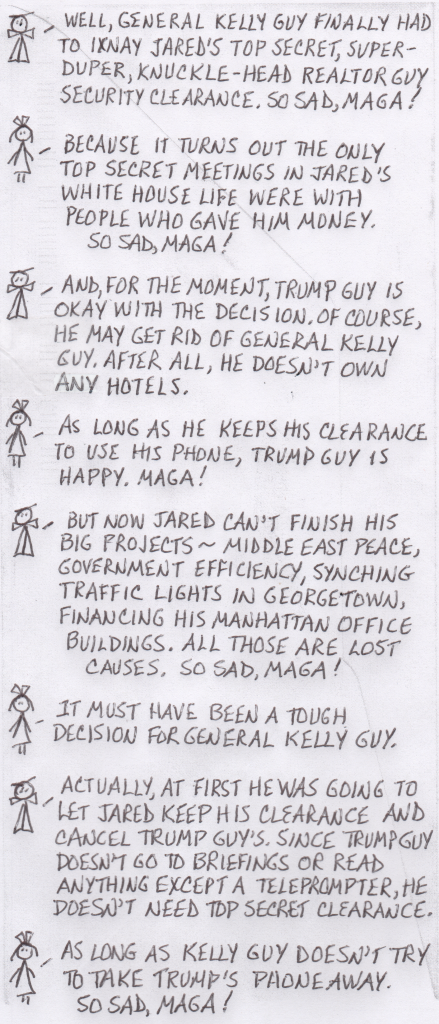 WELL, GENERAL KELLY GUY FINALLY HAD
TO IXNAY JARED'S TOP SECRET, SUPER-
DUPER, KNUCKLE-HEAD REALTOR GUY
SECURITY CLEARANCE. SO SAD, MAGA!
BECAUSE IT TURNS OUT THE ONLY
TOP SECRET MEETINGS IN JARED'S
WHITE HOUSE LIFE WERE WITH
PEOPLE WHO GAVE HIM MONEY.
SO SAD, MAGA!
AND, FOR THE MOMENT, TRUMP GUY IS
OKAY WITH THE DECISION. OF COURSE,
HE MAY GET RID OF GENERAL KELLY
GUY. AFTER ALL, HE DOESN'T OWN
ANY HOTELS.
AS LONG AS HE KEEPS HIS CLEARANCE
TO USE HIS PHONE, TRUMP GUY IS
HAPPY. MAGA!
BUT NOW JARED CAN'T FINISH HIS
BIG PROJECTS ~ MIDDLE EAST PEACE,
GOVERNMENT EFFICIENCY, SYNCHING
TRAFFIC LIGHTS IN GEORGETOWN,
FINANCING HIS MANHATTAN OFFICE
BUILDINGS. ALL THOSE ARE LOST
CAUSES. SO SAD, MAGA!
IT MUST HAVE BEEN A TOUGH
DECISION FOR GENERAL KELLY GUY.
ACTUALLY, AT FIRST HE WAS GOING TO
LET JARED KEEP HIS CLEARANCE AND
CANCEL TRUMP GUY'S. SINCE TRUMP GUY
DOESN'T GO TO BRIEFINGS OR READ
ANYTHING EXCEPT A TELEPROMPTER, HE
DOESN'T NEED TOP SECRET CLEARANCE.
AS LONG AS KELLY GUY DOESN'T TRY
TO TAKE TRUMP'S PHONE AWAY.
SO SAD, MAGA!